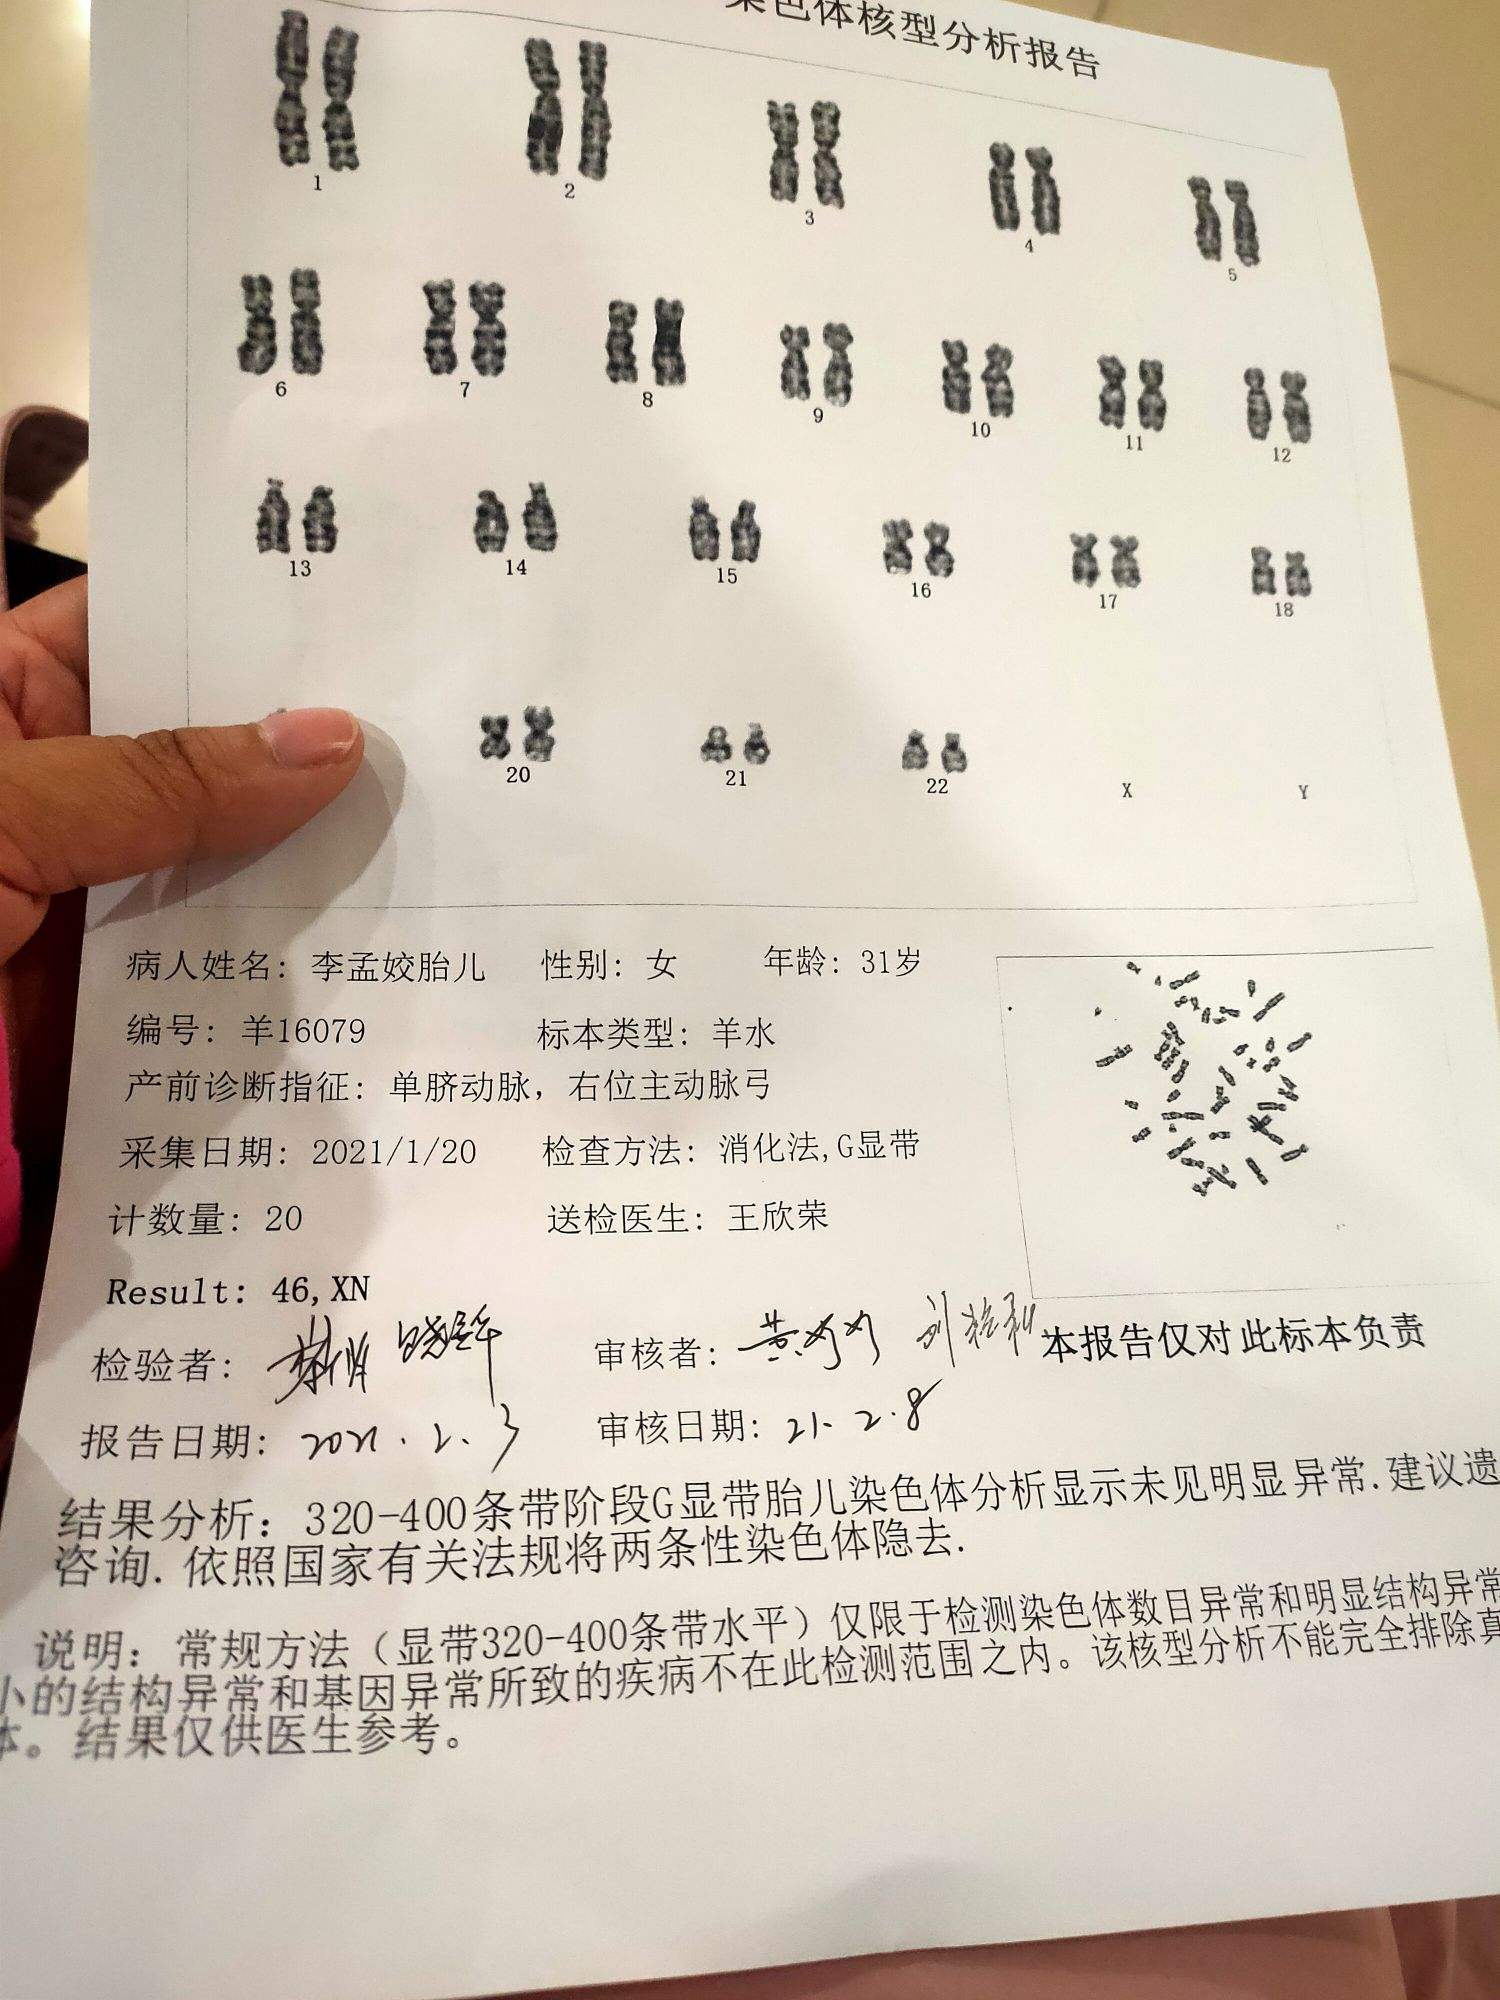 色体核型分析报告
1 2 3 4 5
6 7 8 9 10 11 12
13 14 15 16 17 18
20 21 22 X Y
病人姓名: 李孟姣胎儿 性别: 女 年龄: 31岁
编号: 羊16079 标本类型: 羊水
产前诊断指征: 单脐动脉，右位主动脉弓
采集日期: 2021/1/20 检查方法: 消化法,G显带
计数量: 20 送检医生: 王欣荣
Result: 46,XN
检验者: 审核者: 本报告仅对此标本负责
报告日期: 2021.2.3 审核日期: 21.2.8
结果分析: 320-400条带阶段G显带胎儿染色体分析显示未见明显异常.建议遗
咨询.依照国家有关法规将两条性染色体隐去.
说明: 常规方法（显带320-400条带水平）仅限于检测染色体数目异常和明显结构异常
小的结构异常和基因异常所致的疾病不在此检测范围之内。该核型分析不能完全排除真
体。结果仅供医生参考。